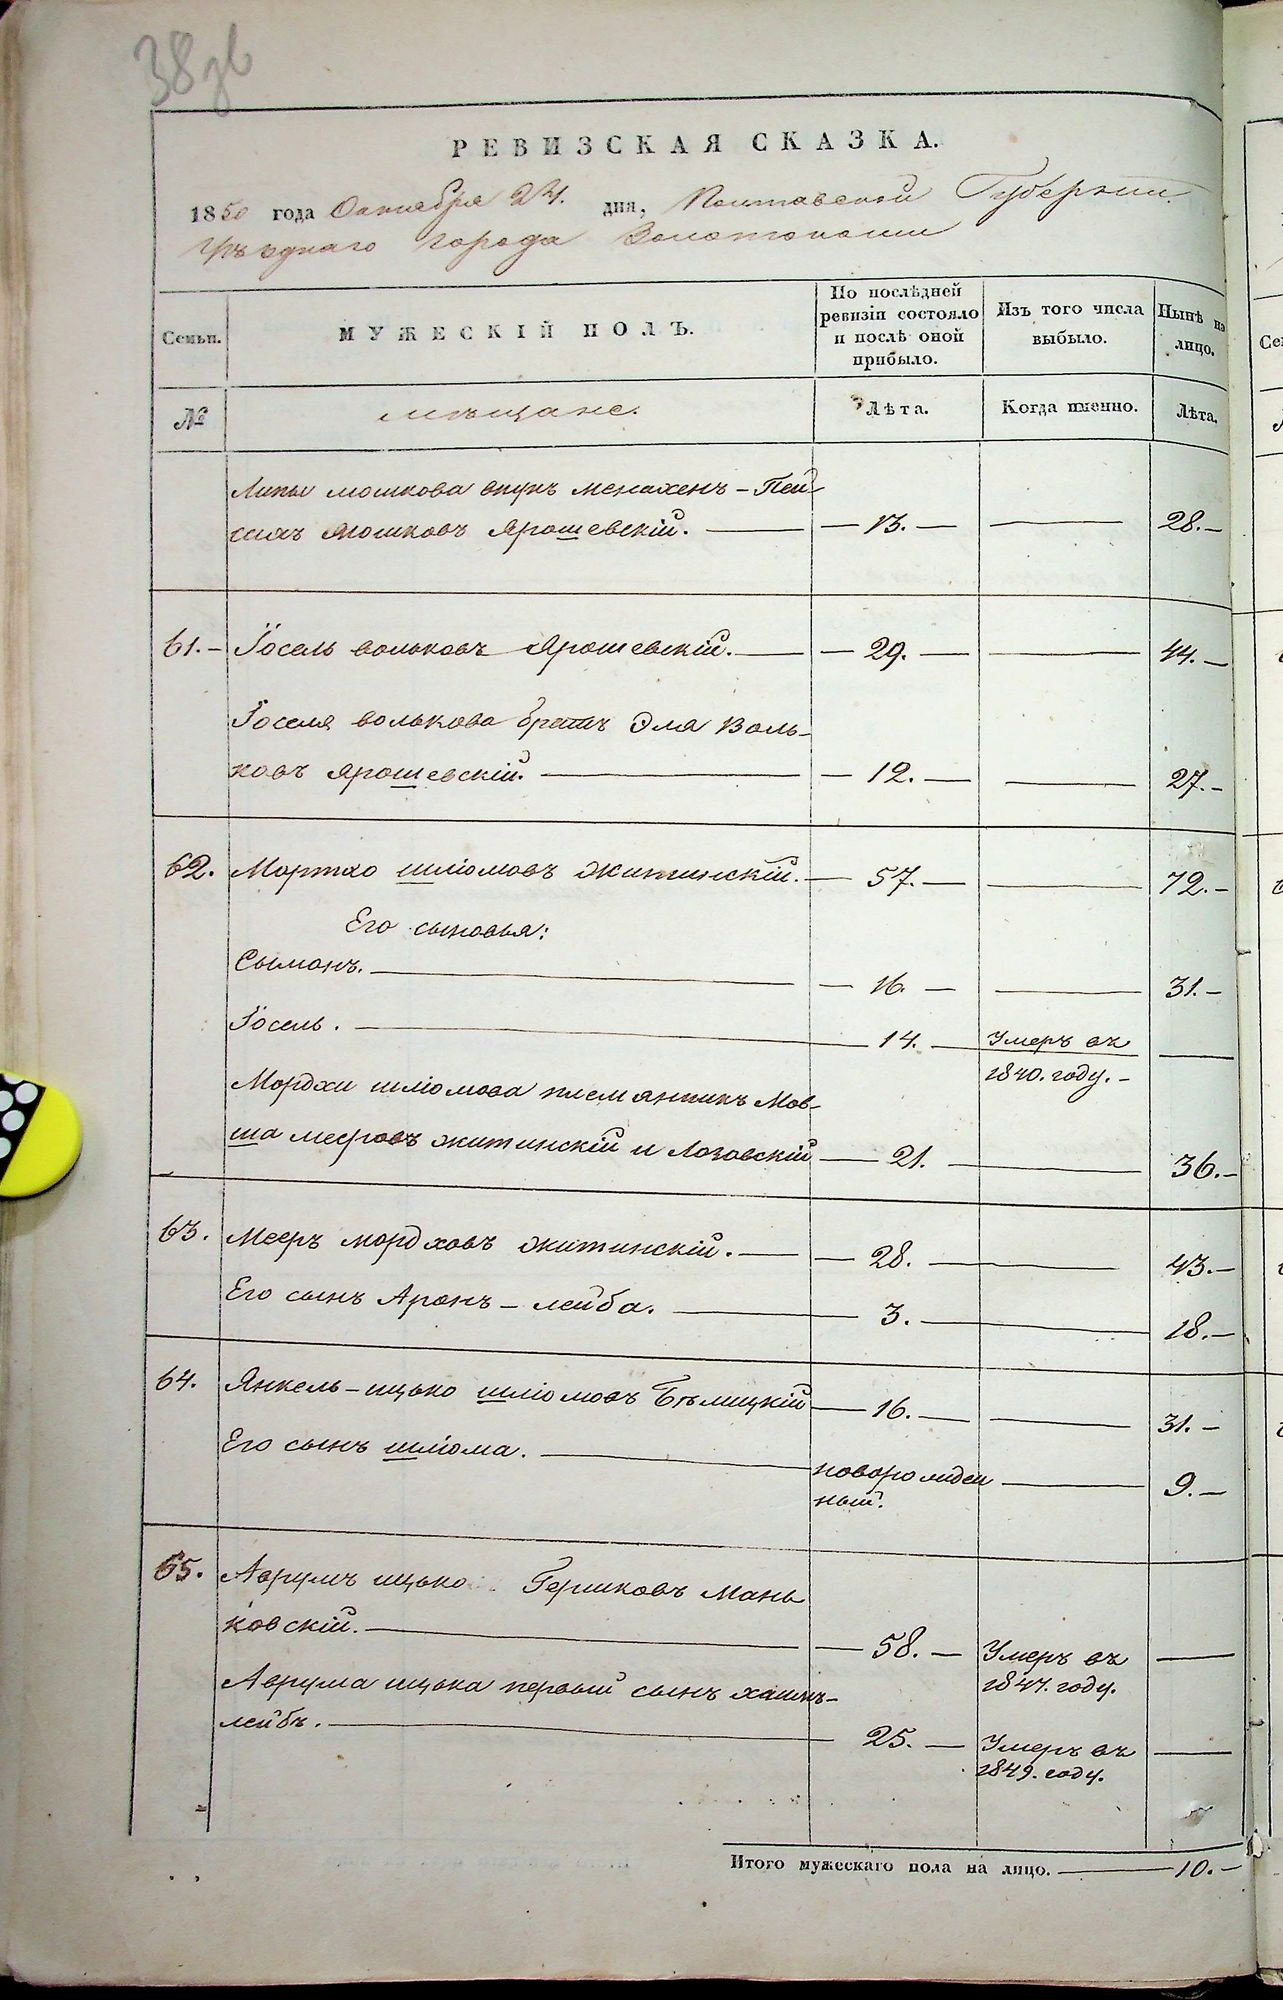 38 об
РЕВИЗСКАЯ СКАЗКА.
1850 года Октября 24. дня, Полтавской Губернии.
Уѣзднаго города Золотоноши
Семьи. МУЖЕСКІЙ ПОЛЪ. По послѣдней ревизіи состояло и послѣ оной прибыло. Изъ того числа выбыло. Нынѣ на лицо.
№ мѣщане. Лѣта. Когда именно. Лѣта.
Липы мошкова внукъ менахенъ – Пей
сахъ мошковъ Ярошевскій. — 13. — — 28. —
61. – Іосель вольковъ Ярошевскій. — 29. — — 44. —
Іоселя волькова братъ Эля Воль-
ковъ ярошевскій. — 12. — — 27. –
62. Мортхо шліомовъ житинскій. — 57. — — 72. –
Его сыновья:
Сыманъ. — 16. — — 31. –
Іосель. — 14. — Умеръ въ —
1840. году. –
Мордхи шліомова племянникъ Мов-
ша мееровъ житинскій и Лозовскій — 21. — — 36. –
63. Мееръ мордховъ житинскій. — 28. — — 43. –
Его сынъ Аронъ – лейба. — 3. — — 18. –
64. Янкель – ицько шліомовъ Бѣлицкій — 16. — — 31. –
Его сынъ шліома. — новорожден — 9. –
ный.
65. Аврумъ ицько Гершковъ Мань
ковскій. — 58. — Умеръ въ —
1847. году.
Аврума ицька первый сынъ хаимъ-
лейбъ. — 25. — Умеръ въ —
1849. году.
Итого мужескаго пола на лицо. — 10. –